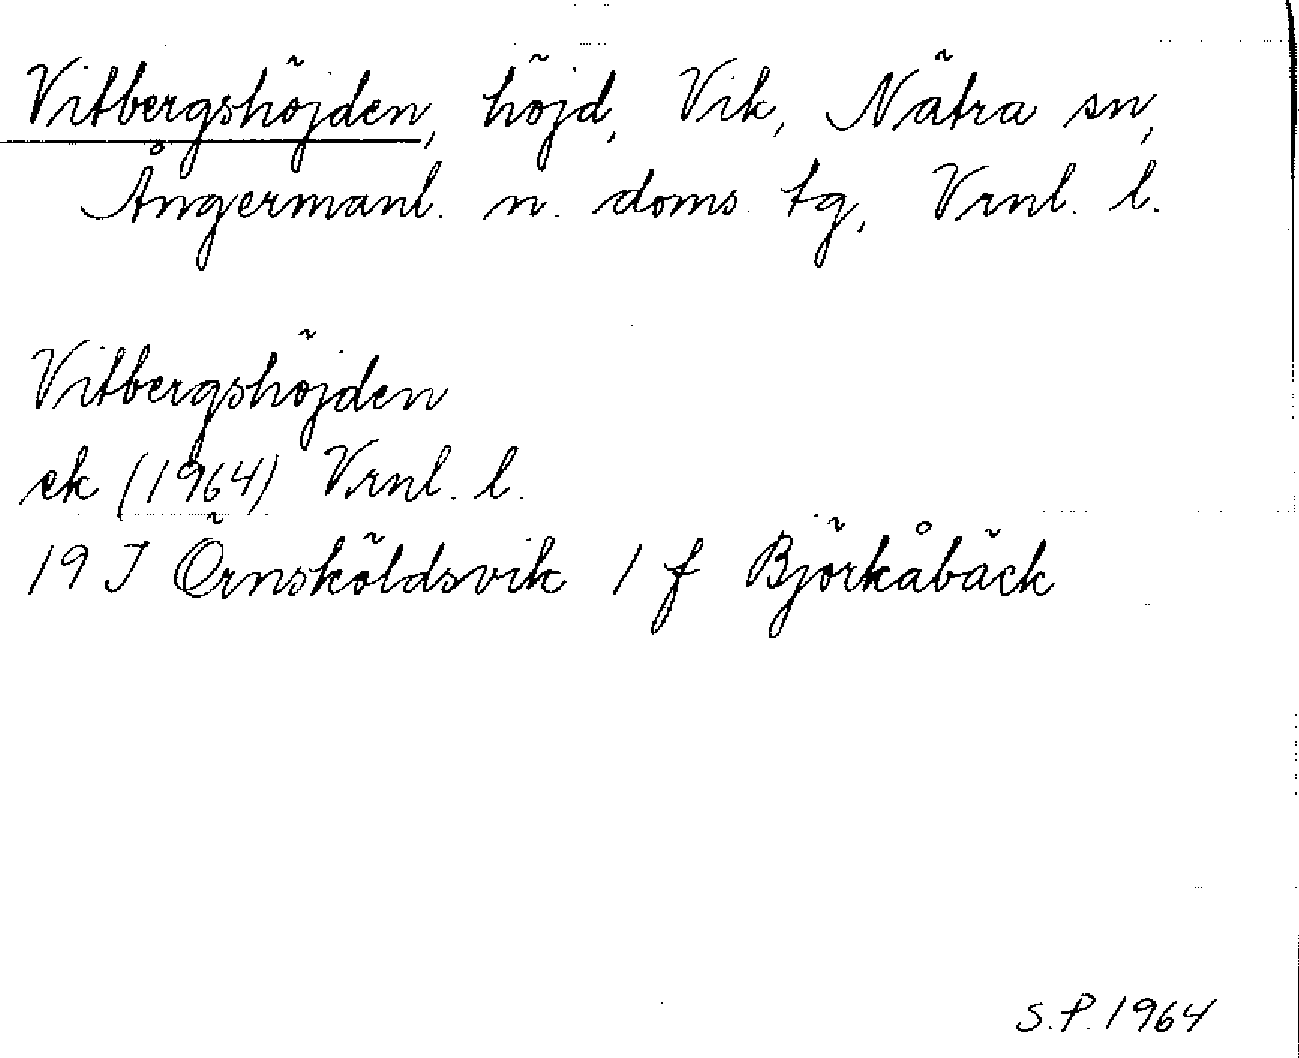 Vitbergshöjden, höjd, Vik, Nätra sn,
Ångermanl. n. doms. tg, Vrnl. l.
Vitbergshöjden
ek (1964) Vrnl. l.
19 J Örnsköldsvik 1 f Björkåbäck
S.P. 1964